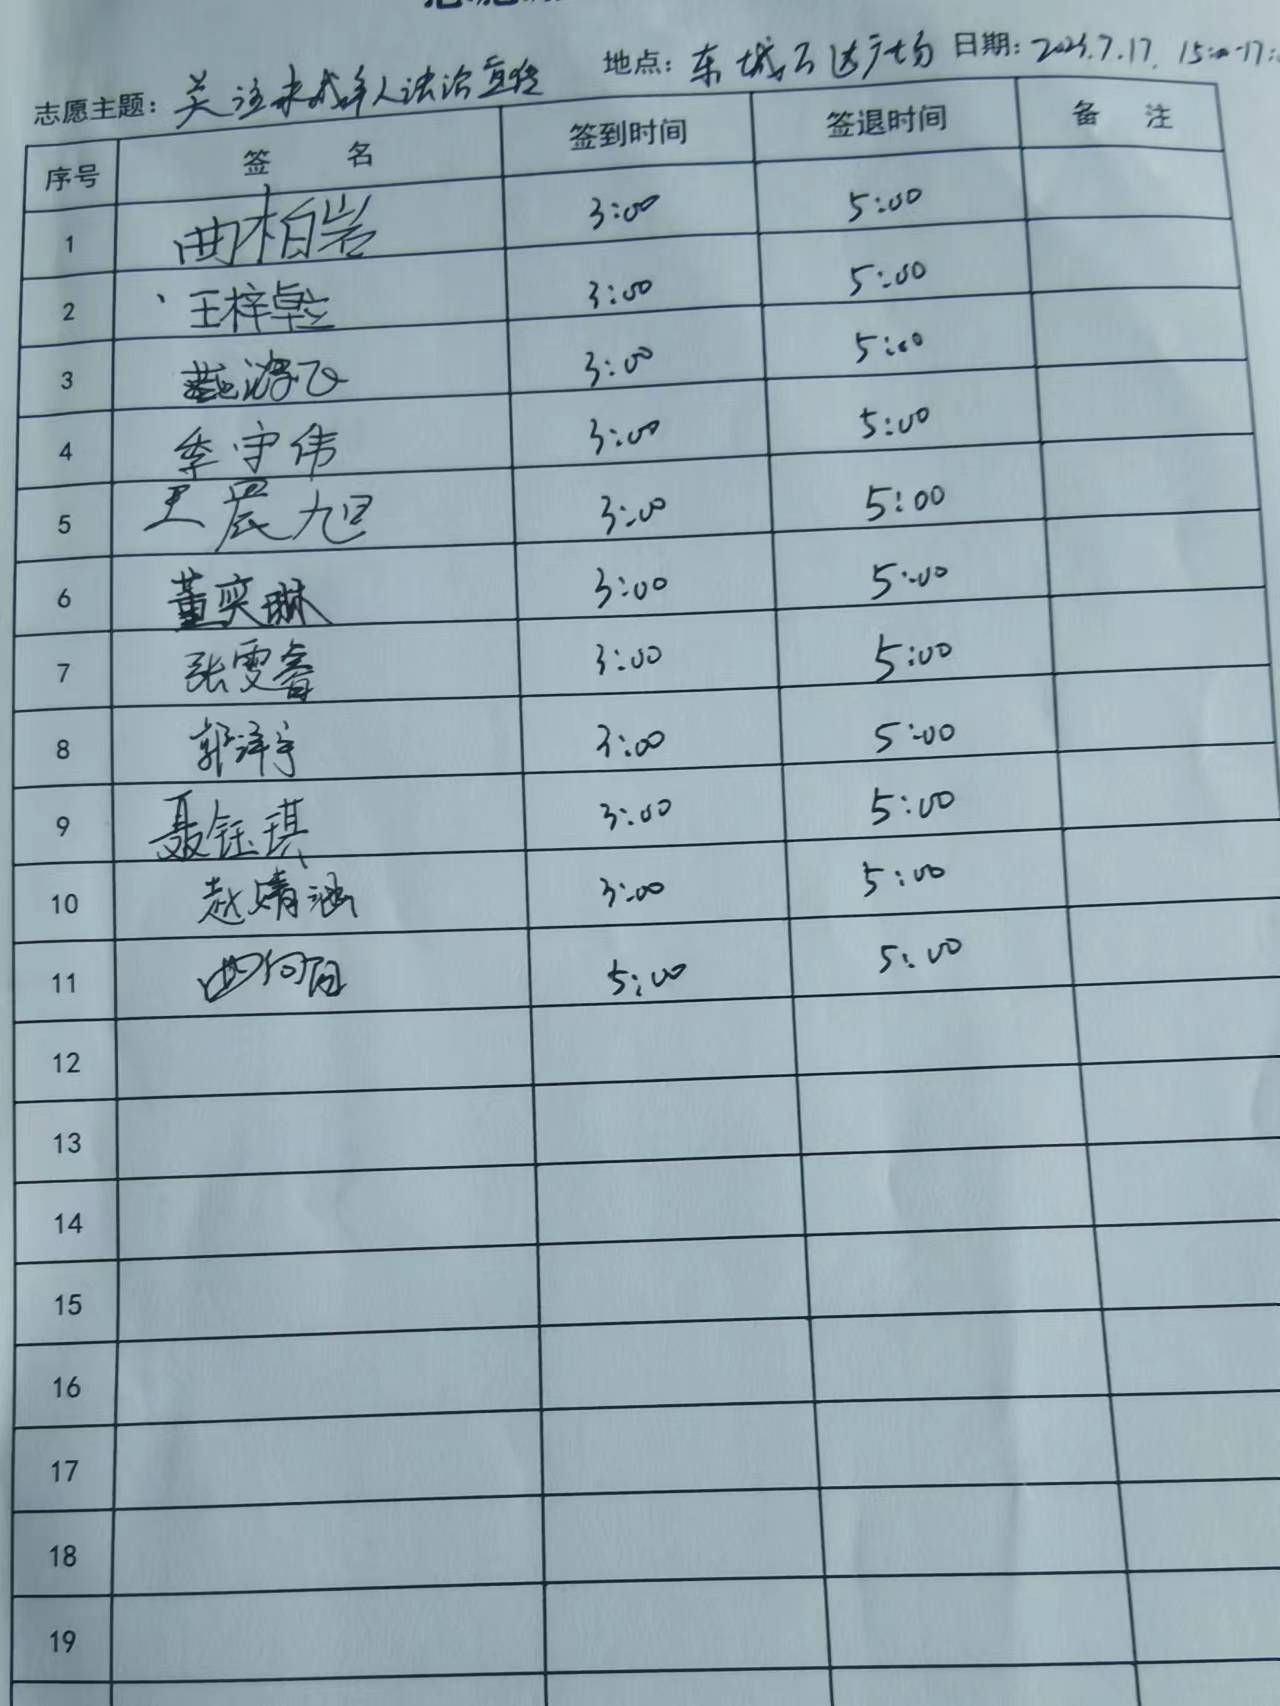 志愿主题: 关注未成年人法治宣传 地点: 东城万达广场 日期: 7.17. 15:00-17:
序号 签 名 签到时间 签退时间 备 注
1 曲柏岩 3:00 5:00
2 王梓卓 3:00 5:00
3 3:00 5:00
4 季守伟 3:00 5:00
5 王晨旭 3:00 5:00
6 董奕琳 3:00 5:00
7 张雯睿 3:00 5:00
8 郭泽宇 3:00 5:00
9 聂钰琪 3:00 5:00
10 赵婧涵 3:00 5:00
11 5:00 5:00
12
13
14
15
16
17
18
19